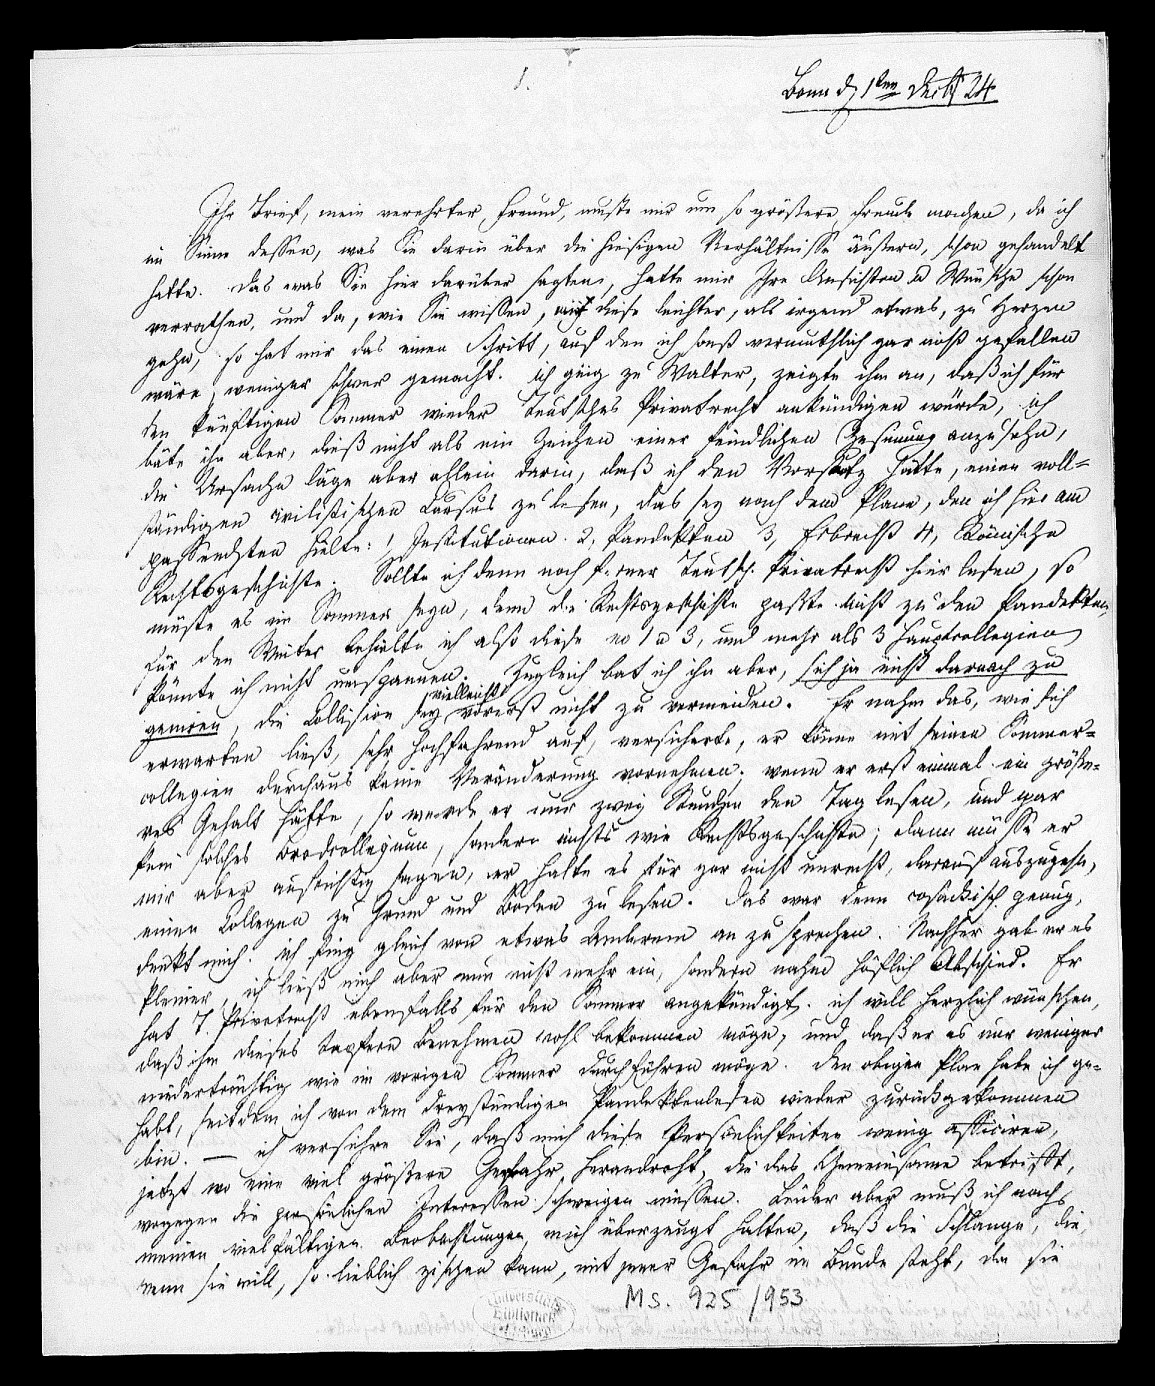 1.
Bonn d 1ten Dec 24
Ihr Brief, mein verehrter Freund, mußte mir um so größere Freude machen, da ich
im Sinne dessen, was Sie darin über die hiesigen Verhältnisse äußern, schon gehandelt
hatte. Das was Sie hier darüber sagten, hatte mir Ihre Ansichten u Wünsche schon
verrathen, und da, wie Sie wissen, mir diese leichter, als irgend etwas, zu Herzen
gehn, so hat mir das einen Schritt, auf den ich sonst vermuthlich gar nicht gefallen
wäre, weniger schwer gemacht. Ich ging zu Walter, zeigte ihm an, daß ich für
den künftigen Sommer wieder Teutsches Privatrecht ankündigen würde, ich
bäte ihn aber, dieß nicht als ein Zeichen einer feindlichen Gesinnung anzusehn,
die Ursache läge aber allein darin, daß ich den Vorsatz hätte, einen voll=
ständigen civilistischen Cursus zu lesen, das sey nach dem Plane, den ich hier am
passendsten hielte: 1, Institutionen. 2, Pandekten 3, Erbrecht 4, Römische
Rechtsgeschichte. Sollte ich denn noch ferner Teutsch. Privatrecht hier lesen, so
müßte es im Sommer seyn, denn die Rechtsgeschichte passte nicht zu den Pandekten,
für den Winter behielte ich also diese no 1 u 3, und mehr als 3 Hauptcollegien
könnte ich nicht umspannen. Zugleich bat ich ihn aber, sich ja nicht darnach zu
geniren, die Collision sey vielleicht vorerst nicht zu vermeiden. Er nahm das, wie sich
erwarten ließ, sehr hochfahrend auf, versicherte, er könne mit seinen Sommer=
collegien durchaus keine Veränderung vornehmen; wenn er erst einmal ein größe=
res Gehalt hätte, so werde er nur zwey Stunden den Tag lesen, und gar
kein solches Brodcollegium, sondern nichts wie Rechtsgeschichte; dann müsse er
mir aber aufrichtig sagen, er halte es für gar nicht unrecht, darauf auszugehn,
einen Collegen zu Grund und Boden zu lesen. Das war denn cosackisch genug,
denkt mich. Ich fing gleich von etwas Anderem an zu sprechen. Nachher gab er es
kleiner, ich ließ mich aber nun nicht mehr ein, sondern nahm höflich Abschied. Er
hat T. Privatrecht ebenfalls für den Sommer angekündigt. Ich will herzlich wünschen,
daß ihm dieses tapfere Benehmen wohl bekommen möge, und daß er es nur weniger
niederträchtig wie im vorigen Sommer durchführen möge. Den obigen Plan habe ich ge=
habt, seitdem ich von dem dreystündigen Pandektenlesen wieder zurückgekommen
bin. — Ich versichre Sie, daß mich diese Persönlichkeiten wenig afficiren,
jetzt wo eine viel größere Gefahr herandroht, die das Gemeinsame betrifft,
wogegen die persönlichen Interessen schweigen müssen. Leider aber muß ich nach
meinen vielfältigen Beobachtungen mich überzeugt halten, daß die Schlange, die,
wenn sie will, so lieblich zischen kann, mit jener Gefahr im Bunde steht, da sie
Ms. 925/953
Universitäts
Bibliothek